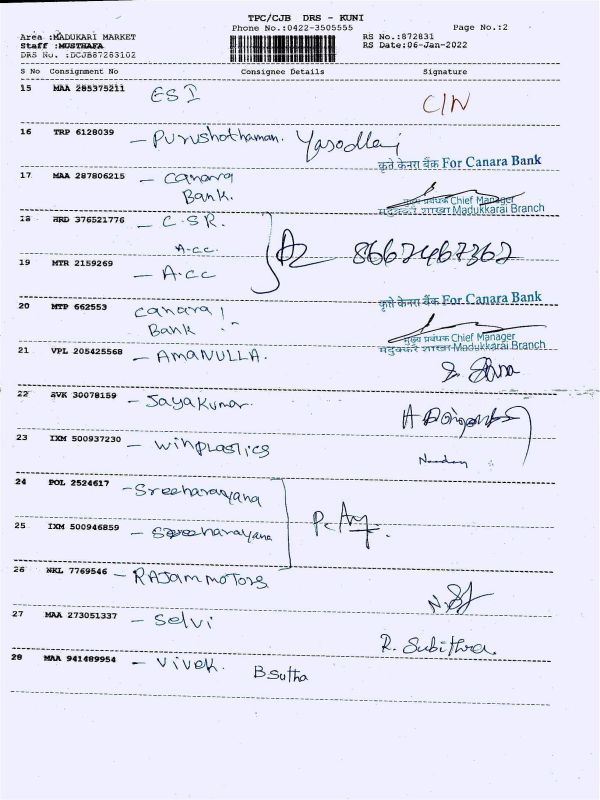 TPC/CJB DRS - KUNI
Phone No.:0422-3505555
Page No.:2
Area :MADUKARI MARKET
RS No.:872831
Staff :MUSTHAFA
RS Date:06-Jan-2022
DRS No. :DCJB87283102
S No Consignment No Consignee Details Signature
15 MAA 285375211 ESI C/N
16 TRP 6128039 - Purushothaman.
कृते केनरा बैंक For Canara Bank
17 MAA 287806215 - Canara
Bank.
मुख्य प्रबंधक Chief Manager
मदुक्करै शाखा Madukkarai Branch
18 HRD 376521776 - C.S.R.
A.CC.
19 MTR 2159269 - A.CC
कृते केनरा बैंक For Canara Bank
20 MTP 662553 Canara
Bank
मुख्य प्रबंधक Chief Manager
मदुक्करै शाखा Madukkarai Branch
21 VPL 205425568 - AMANULLA.
22 SVK 30078159 - Jayakumar.
23 IXM 500937230 - winplastics
24 POL 2524617 - Sreeharayana
25 IXM 500946859 - Sreeharayana
26 NKL 7769546 - RAJam motors
27 MAA 273051337 - Selvi R. Subithra.
28 MAA 941489954 - Vivek. B Sutha